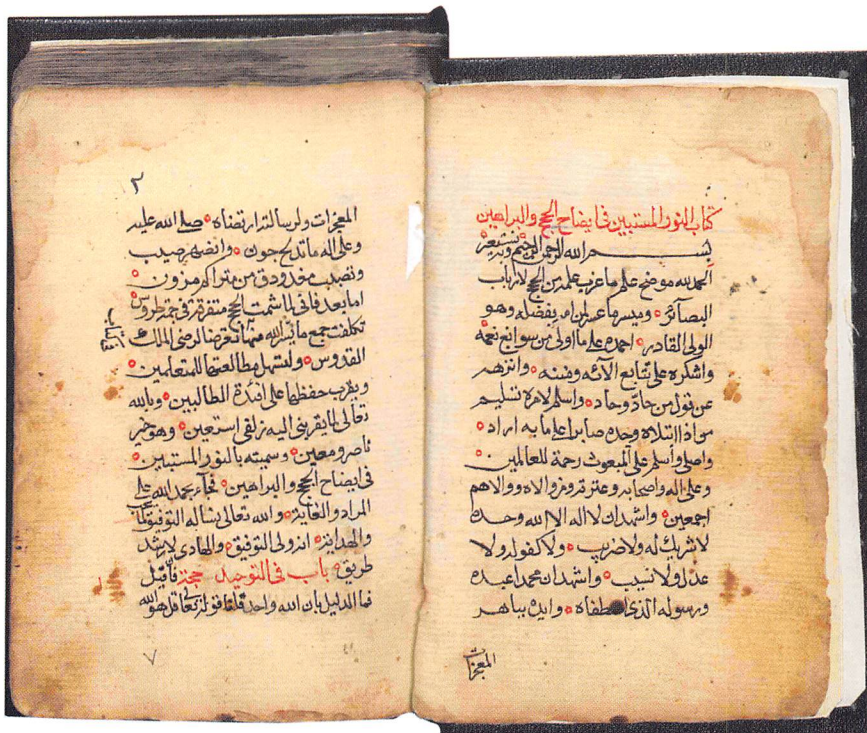 كتاب النور المستبين في ايضاح الحجج والبراهين
بسم الله الرحمن الرحيم وبه نستعين
الحمد لله موضح علم ما عزب علمه من الحجج لارباب
البصآئر وميسر ما عسر من امر بفضله وهو
الولي القادر احمده على ما اولى من سوابغ نعمه
واشكره على تتابع الآئه ومننه وانزهه
عن قول من حادّ وحاد واسلم لامره تسليم
من اذا ابتلاه وجده صابرا على ما به اراد
واصلي وأسلم على المبعوث رحمة للعالمين
وعلى اله واصحابه وعترته ومن والاه ووالاهم
اجمعين واشهد ان لا اله الا الله وحده
لا شريك له ولا ضريب ولا كفو له ولا
عدل ولا نسيب واشهد ان محمدا عبده
ورسوله الذي اصطفاه وايده بباهر
المعجزات
٢
المعجزات ولرسالته ارتضاه صلى الله عليه
وعلى اله ما تدلج جون وانضهر صيب
ونصبب مغدودق من متراكم مزون
اما بعد فاني لما شمت الحجج متفرقة في خمة طروس
تكلفت جمع ما يسر الله منها تعرضا لرضى المالك
القدوس ولتسهل مطالعتها للمتعلمين
ويقرب حفظها على افئدة الطالبين وبالله
تعالى لما يقربني اليه زلفى استعين وهو خير
ناصر ومعين وسميته بالنور المستبين
في ايضاح الحجج والبراهين فجآء بحمد الله على
المراد والغاية والله تعالى نسأله التوفيق لما يحب
والهداية انه ولي التوفيق والهادي لارشد
طريق باب في التوحيد حجة فان قيل
فما الدليل بان الله واحد قلنا قوله تعالى قل هو الله
٧